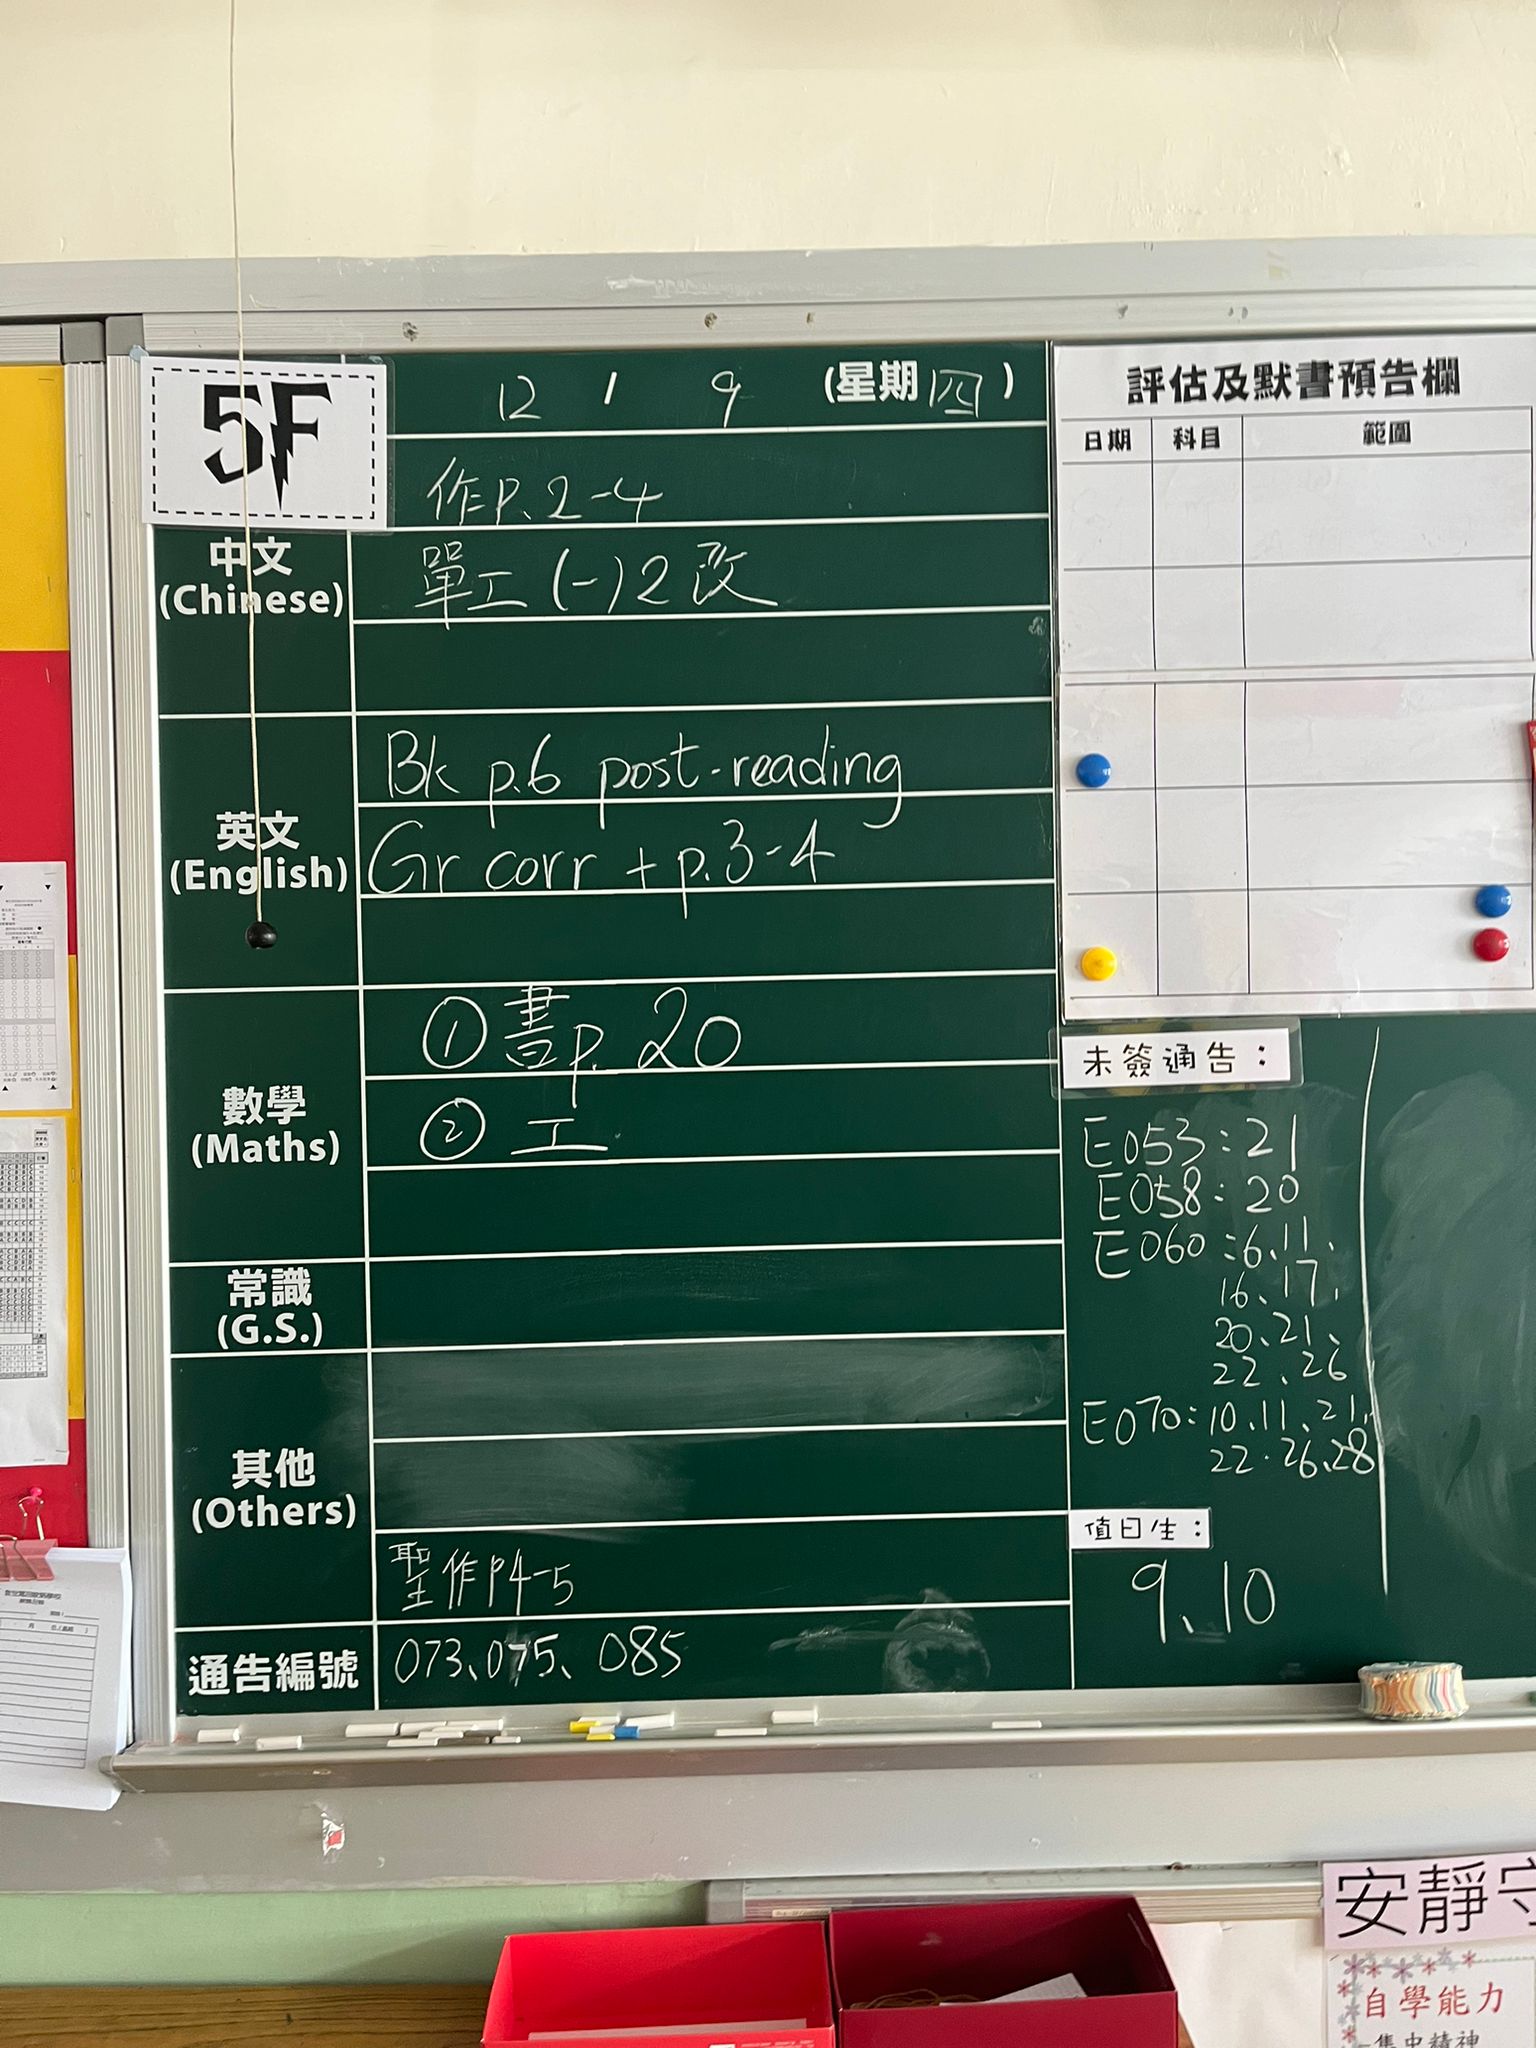 5F
12 / 9 (星期四)
中文
(Chinese)
作P.2-4
單工(一)2改
英文
(English)
Bk p.6 post-reading
Gr corr + p.3-4
數學
(Maths)
① 書p.20
② 工
常識
(G.S.)
其他
(Others)
聖作P4-5
通告編號
073、075、085
評估及默書預告欄
日期 科目 範圍
未簽通告：
E053：21
E058：20
E060：6、11、
16、17、
20、21、
22、26
E070：10、11、21、
22、26、28
值日生：
9、10
安靜守
自學能力
集中精神